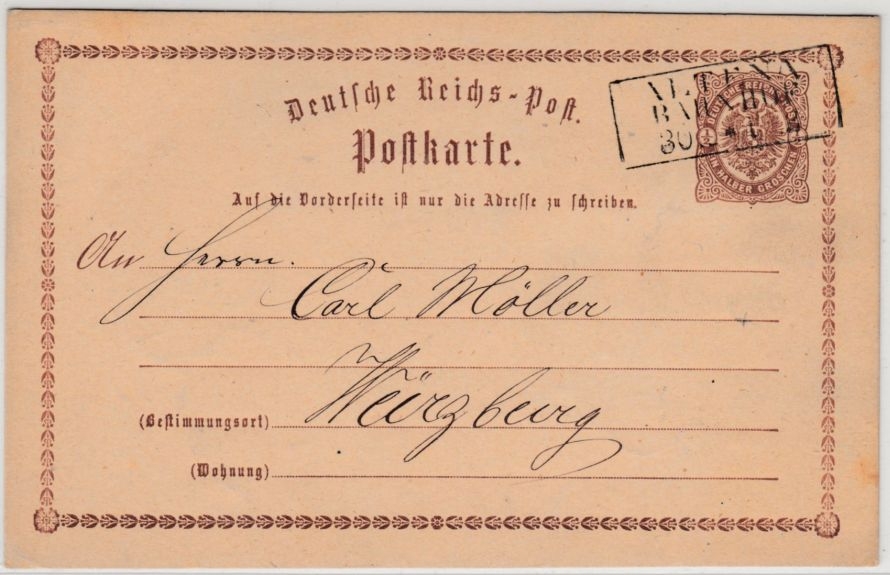 Deutsche Reichs-Post.
Postkarte.
Auf die Vorderseite ist nur die Adresse zu schreiben.
ALTENA
BAHNHOF
30
DEUTSCHE REICHS-POST
EIN HALBER GROSCHEN
An Herrn.
Carl Möller
Würzburg
(Bestimmungsort)
(Wohnung)